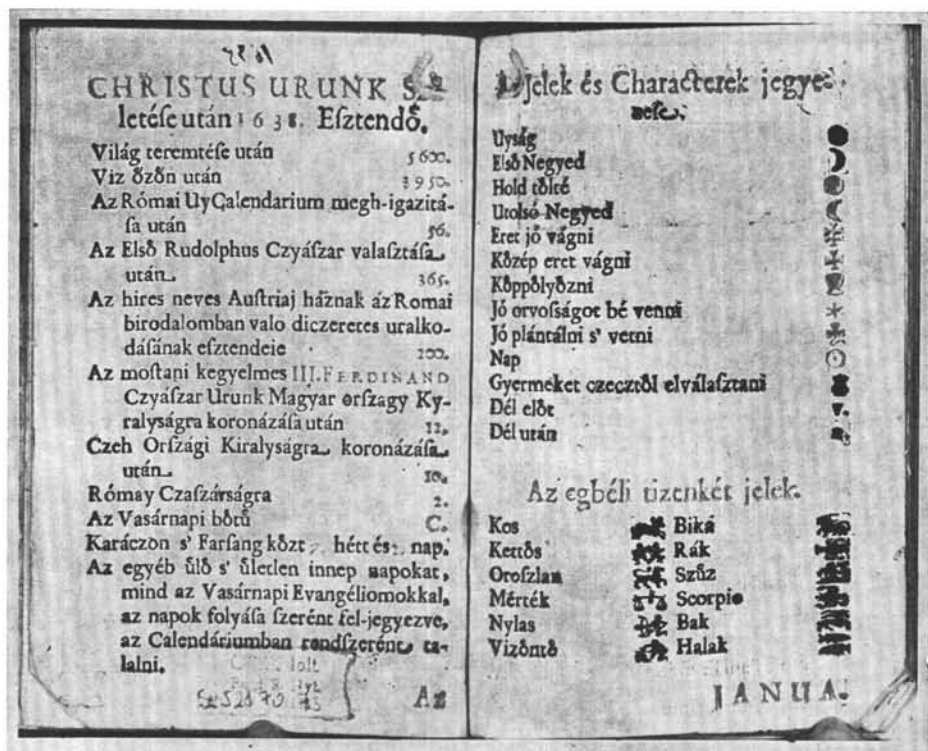 CHRISTUS URUNK S
letéſe után 1638. Eſztendő.
Világ teremtéſe után 5600.
Viz özön után 3950.
Az Római Uy Calendarium megh-igazitá-
ſa után 56.
Az Elsö Rudolphus Czyáſzar valaſztáſa
után 365.
Az hires neves Auſtriaj háznak áz Romai
birodalomban valo diczeretes uralko-
dáſának eſztendeie 200.
Az moſtani kegyelmes III. FERDINAND
Czyáſzar Urunk Magyar orſzagy Ky-
ralyságra koronázáſa után 12.
Czeh Orſzági Kiralyságra koronázáſa
után 10.
Rómay Czaſzárságra 2.
Az Vasárnapi bötű C.
Karáczon s' Farſang közt 7. hétt és nap.
Az egyéb ülö s' ületlen innep napokat,
mind az Vasárnapi Evangéliomokkal,
az napok folyáſa ſzerént fel-jegyezve,
az Calendáriumban rendſzerént ta-
lalni.
Az
Jelek és Characterek jegye-
zeſe.
Uyság
Elsö Negyed
Hold tölté
Utolsó Negyed
Eret jó vágni
Közép eret vágni
Köppölyözni
Jó orvoſságot bé venni
Jó plántálni s' vetni
Nap
Gyermeket czecztöl elválaſztani
Dél elöt v.
Dél után
Az egbéli tizenkét jelek.
Kos Biká
Kettös Rák
Oroſzlan Szűz
Mérték Scorpio
Nylas Bak
Vizöntö Halak
JANUA.